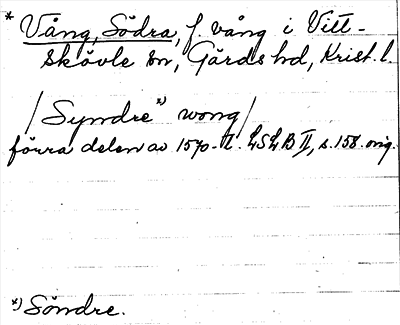 * Vång, Södra, f. vång i Vitt-
skövle sn, Gärds hd, Krist. l.
/Syndre*) wong/
förra delen av 1570-t. LSLB II, s. 158. orig.
*) Söndre.